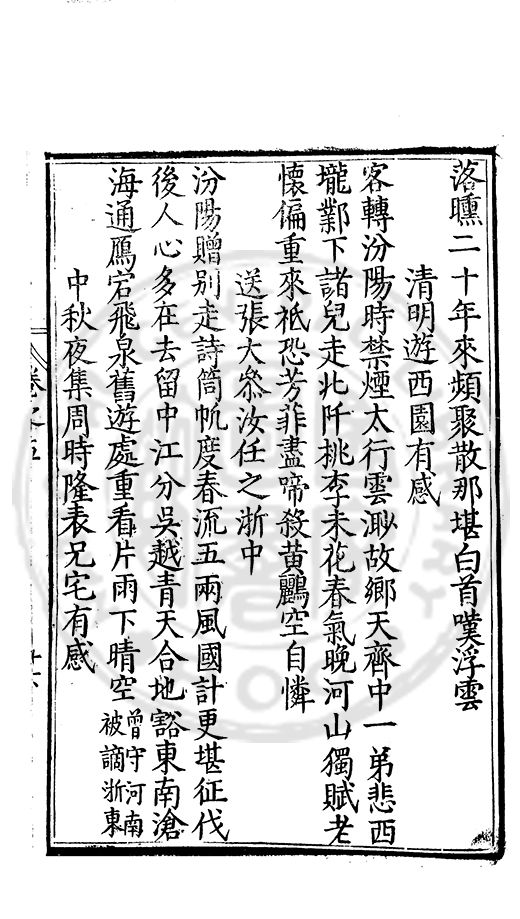 落曛二十年來頻聚散那堪白首嘆浮雲
清明遊西園有感
客轉汾陽時禁煙太行雲渺故鄉天齊中一弟悲西
壠鄴下諸兒走北阡桃李未花春氣晚河山獨賦老
懷偏重來祇恐芳菲盡啼殺黃鸝空自憐
送張大叅汝任之浙中
汾陽贈别走詩筒帆度春流五兩風國計更堪征伐
後人心多在去留中江分吳越青天合地豁東南滄
海通鴈宕飛泉舊遊處重看片雨下晴空
曾守河南
被謫浙東
中秋夜集周時隆表兄宅有感
卷之五